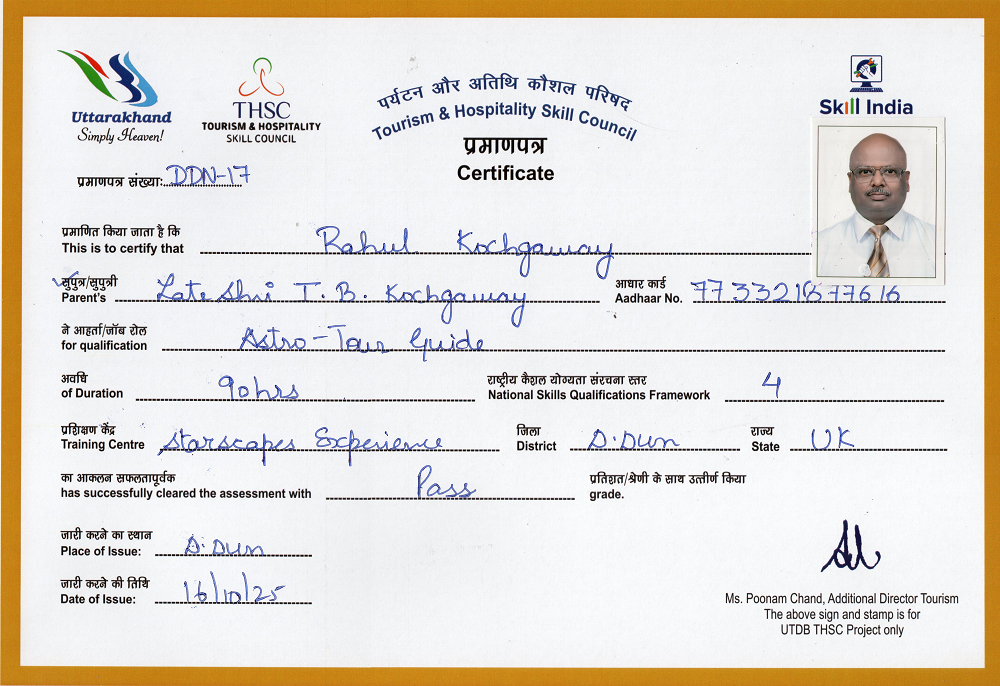 Uttarakhand
Simply Heaven!
THSC
TOURISM & HOSPITALITY
SKILL COUNCIL
पर्यटन और अतिथि कौशल परिषद
Tourism & Hospitality Skill Council
प्रमाणपत्र
Certificate
Skill India
प्रमाणपत्र संख्या: DDN-17
प्रमाणित किया जाता है कि
This is to certify that Rahul Kochgaway
सुपुत्र/सुपुत्री
Parent's Late Shri T. B. Kochgaway
आधार कार्ड
Aadhaar No.
ने आहर्ता/जॉब रोल
for qualification Astro-Tour Guide
अवधि
of Duration 90hrs
राष्ट्रीय कैशल योग्यता संरचना स्तर
National Skills Qualifications Framework 4
प्रशिक्षण केंद्र
Training Centre Starscapes Experience
जिला
District D.Dun
राज्य
State UK
का आकलन सफलतापूर्वक
has successfully cleared the assessment with Pass
प्रतिशत/श्रेणी के साथ उत्तीर्ण किया
grade.
जारी करने का स्थान
Place of Issue: D.Dun
जारी करने की तिथि
Date of Issue: 16/10/25
Ms. Poonam Chand, Additional Director Tourism
The above sign and stamp is for
UTDB THSC Project only